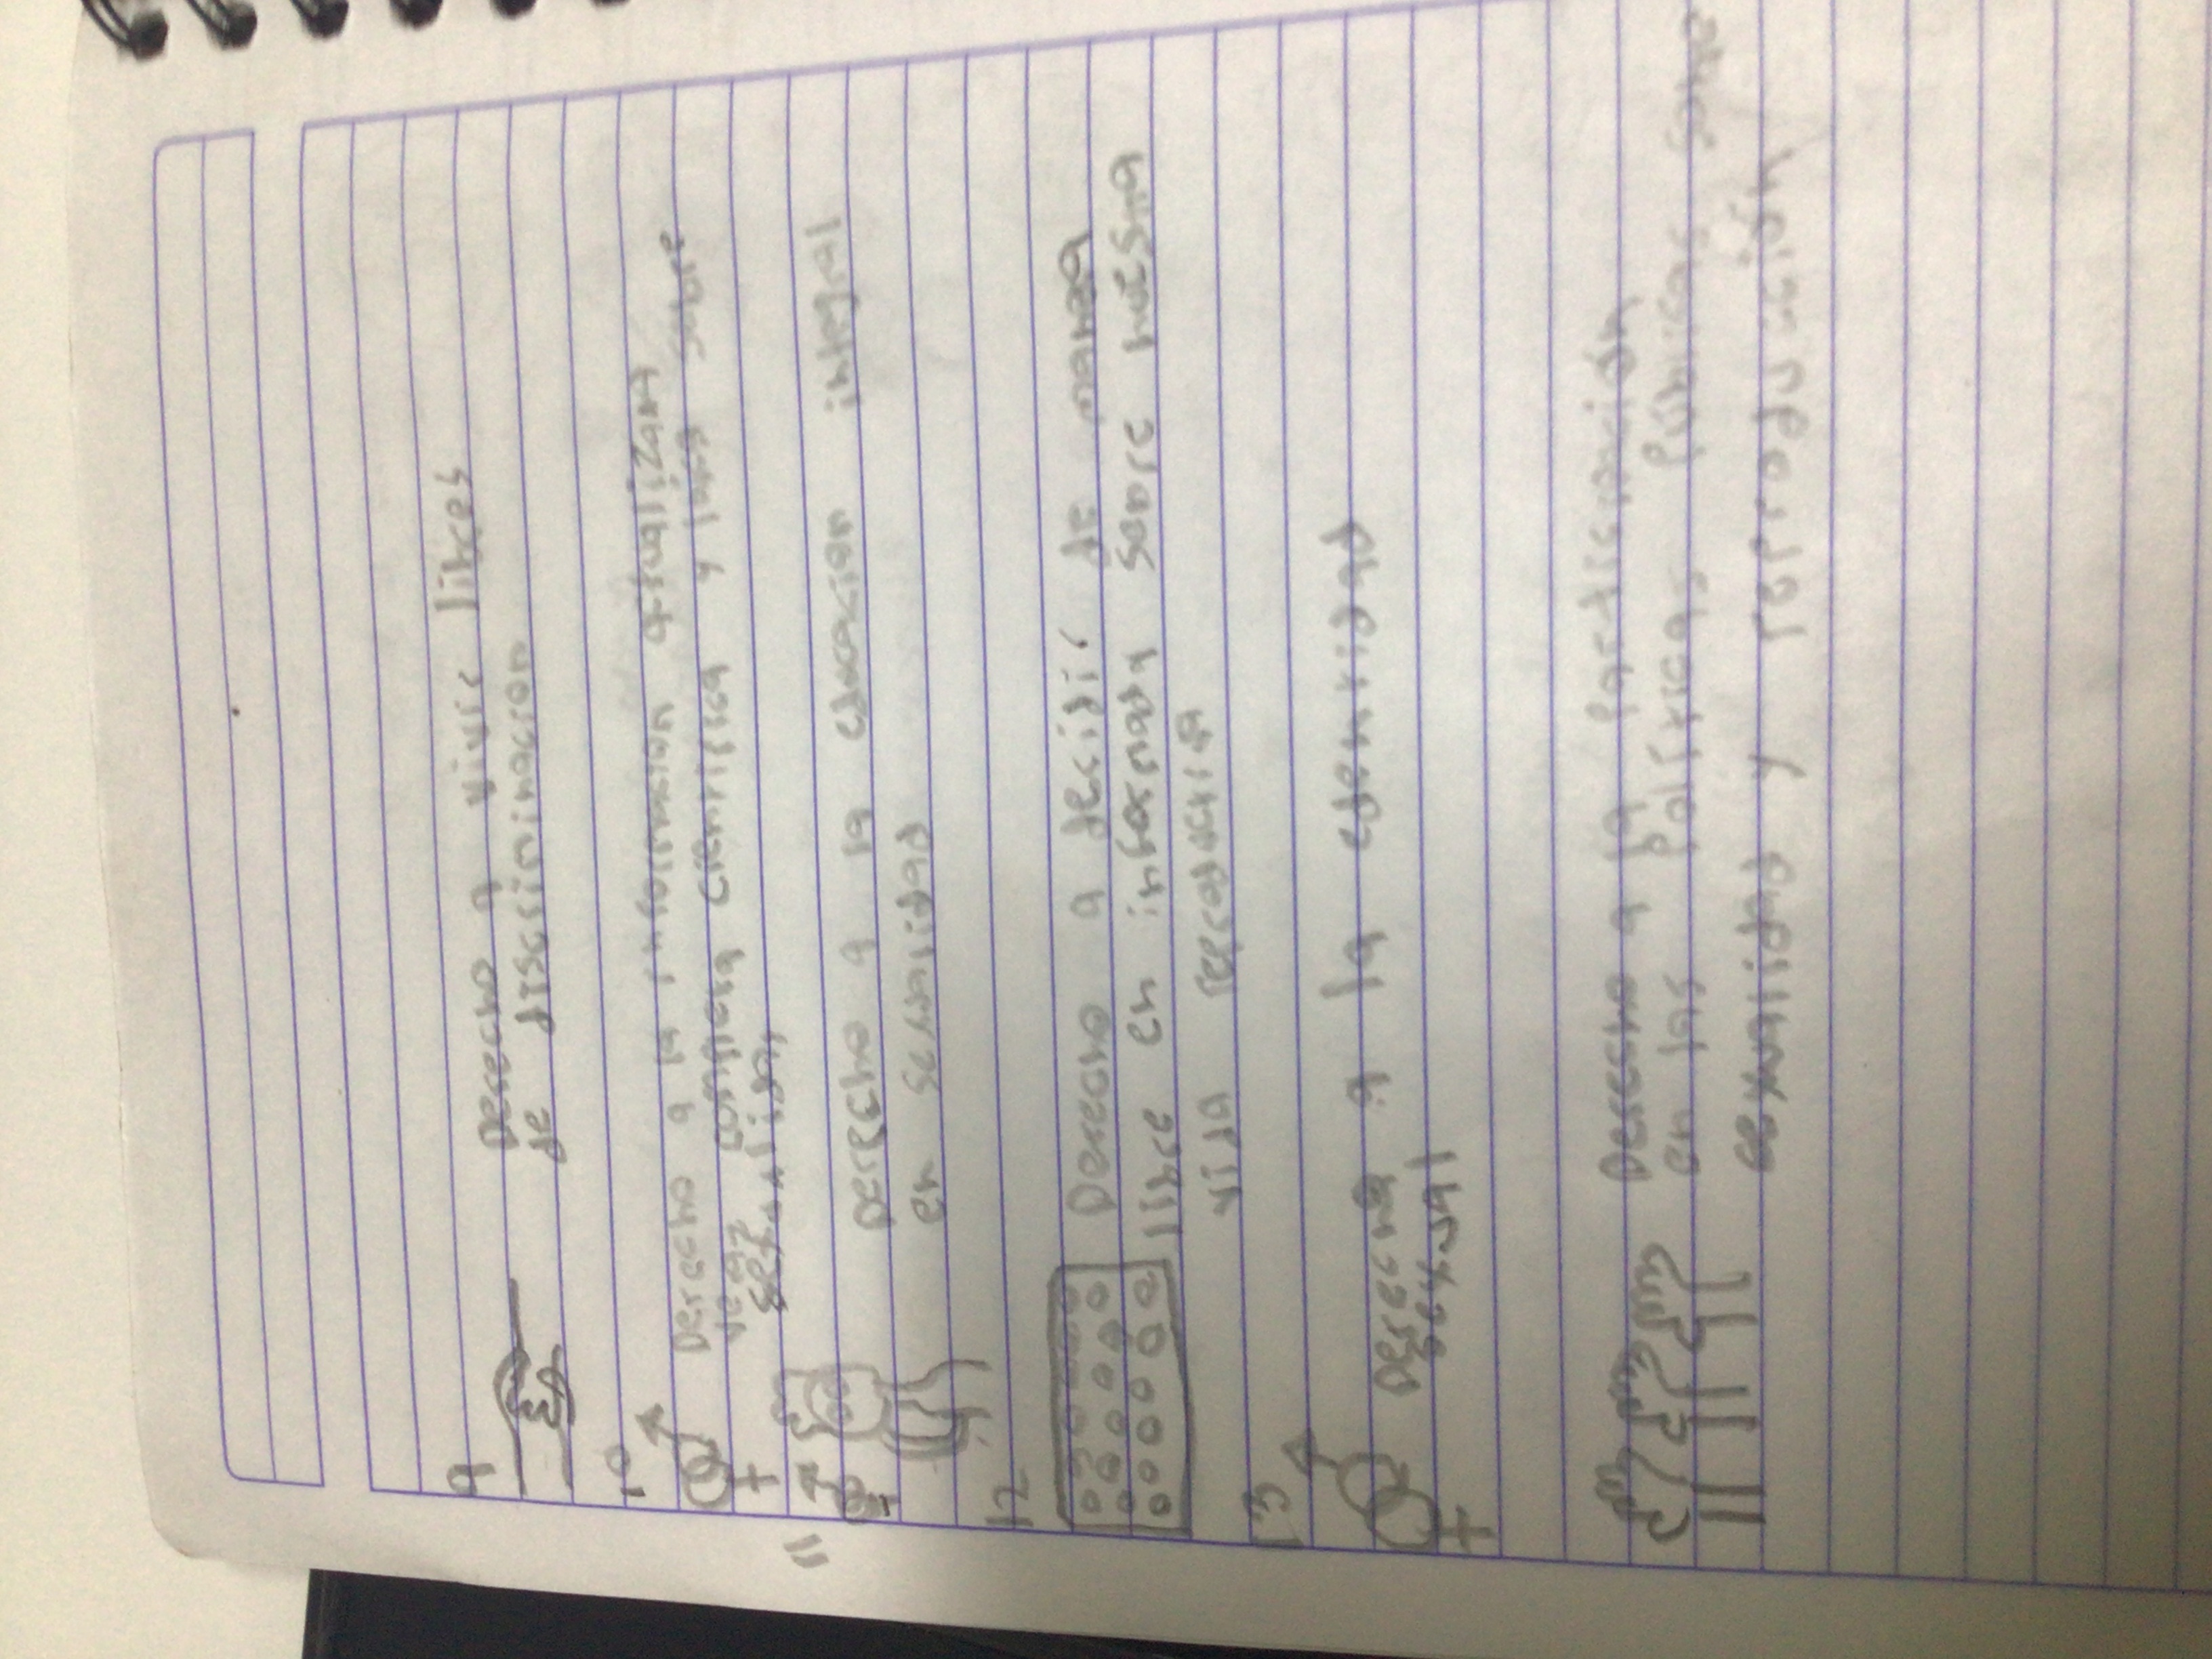 9
Derecho a vivir libres
de discriminacion
10
Derecho a la informacion actualizada
veraz completa cientifica y laica sobre
sexualidad
11
DerEcho a la educacion integral
en sexualidad
12
Derecho a decidir de manera
libre en informada sobre nuestra
vida reproductiva
13
Derecho a la identidad
sexual
Derecho a la participación
en las politicas públicas sobre
sexualidad y reproducción